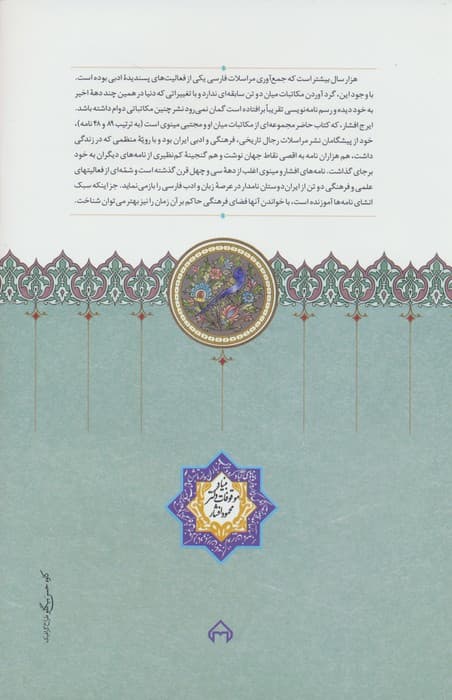 هزار سال بیشتر است که جمع‌آوری مراسلات فارسی یکی از فعالیت‌های پسندیدهٔ ادبی بوده است.
با وجود این، گرد آوردن مکاتبات میان دو تن سابقه‌ای ندارد و با تغییراتی که دنیا در همین چند دههٔ اخیر
به خود دیده و رسم نامه‌نویسی تقریباً برافتاده است گمان نمی‌رود نشر چنین مکاتباتی دوام داشته باشد.
ایرج افشار، که کتاب حاضر مجموعه‌ای از مکاتبات میان او و مجتبی مینوی است (به ترتیب ۸۹ و ۴۸ نامه)،
خود از پیشگامان نشر مراسلات رجال تاریخی، فرهنگی و ادبی ایران بود و با رویّهٔ منظمی که در زندگی
داشت، هم هزاران نامه به اقصی نقاط جهان نوشت و هم گنجینهٔ کم‌نظیری از نامه‌های دیگران به خود
برجای گذاشت. نامه‌های افشار و مینوی اغلب از دههٔ سی و چهل قرن گذشته است و شمّه‌ای از فعالیتهای
علمی و فرهنگی دو تن از ایران‌دوستان نامدار در عرصهٔ زبان و ادب فارسی را بازمی‌نماید. جز اینکه سبک
انشای نامه‌ها آموزنده است، با خواندن آنها فضای فرهنگی حاکم بر آن زمان را نیز بهتر می‌توان شناخت.
بنیاد
موقوفات دکتر
محمود افشار